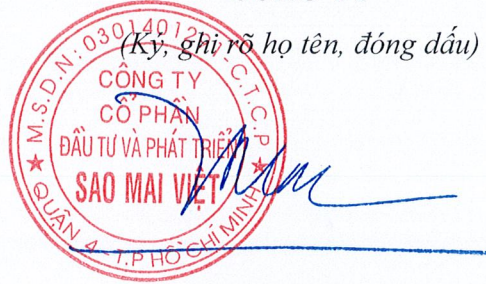 (Ký, ghi rõ họ tên, đóng dấu)
M.S.D.N: 03014012 -C.T.C.P
CÔNG TY
CỔ PHẦN
ĐẦU TƯ VÀ PHÁT TRIỂN
SAO MAI VIỆT
QUẬN 4 - T.P HỒ CHÍ MINH